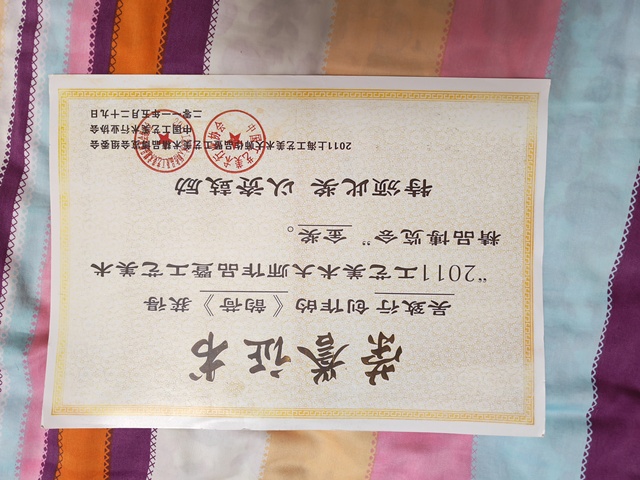 荣誉证书
吴致行 创作的《韵荷》获得
“2011工艺美术大师作品暨工艺美术
精品博览会” 金奖。
特颁此奖 以资鼓励
2011上海工艺美术大师作品暨工艺美术精品博览会组委会
中国工艺美术行业协会
二零一一年五月二十九日